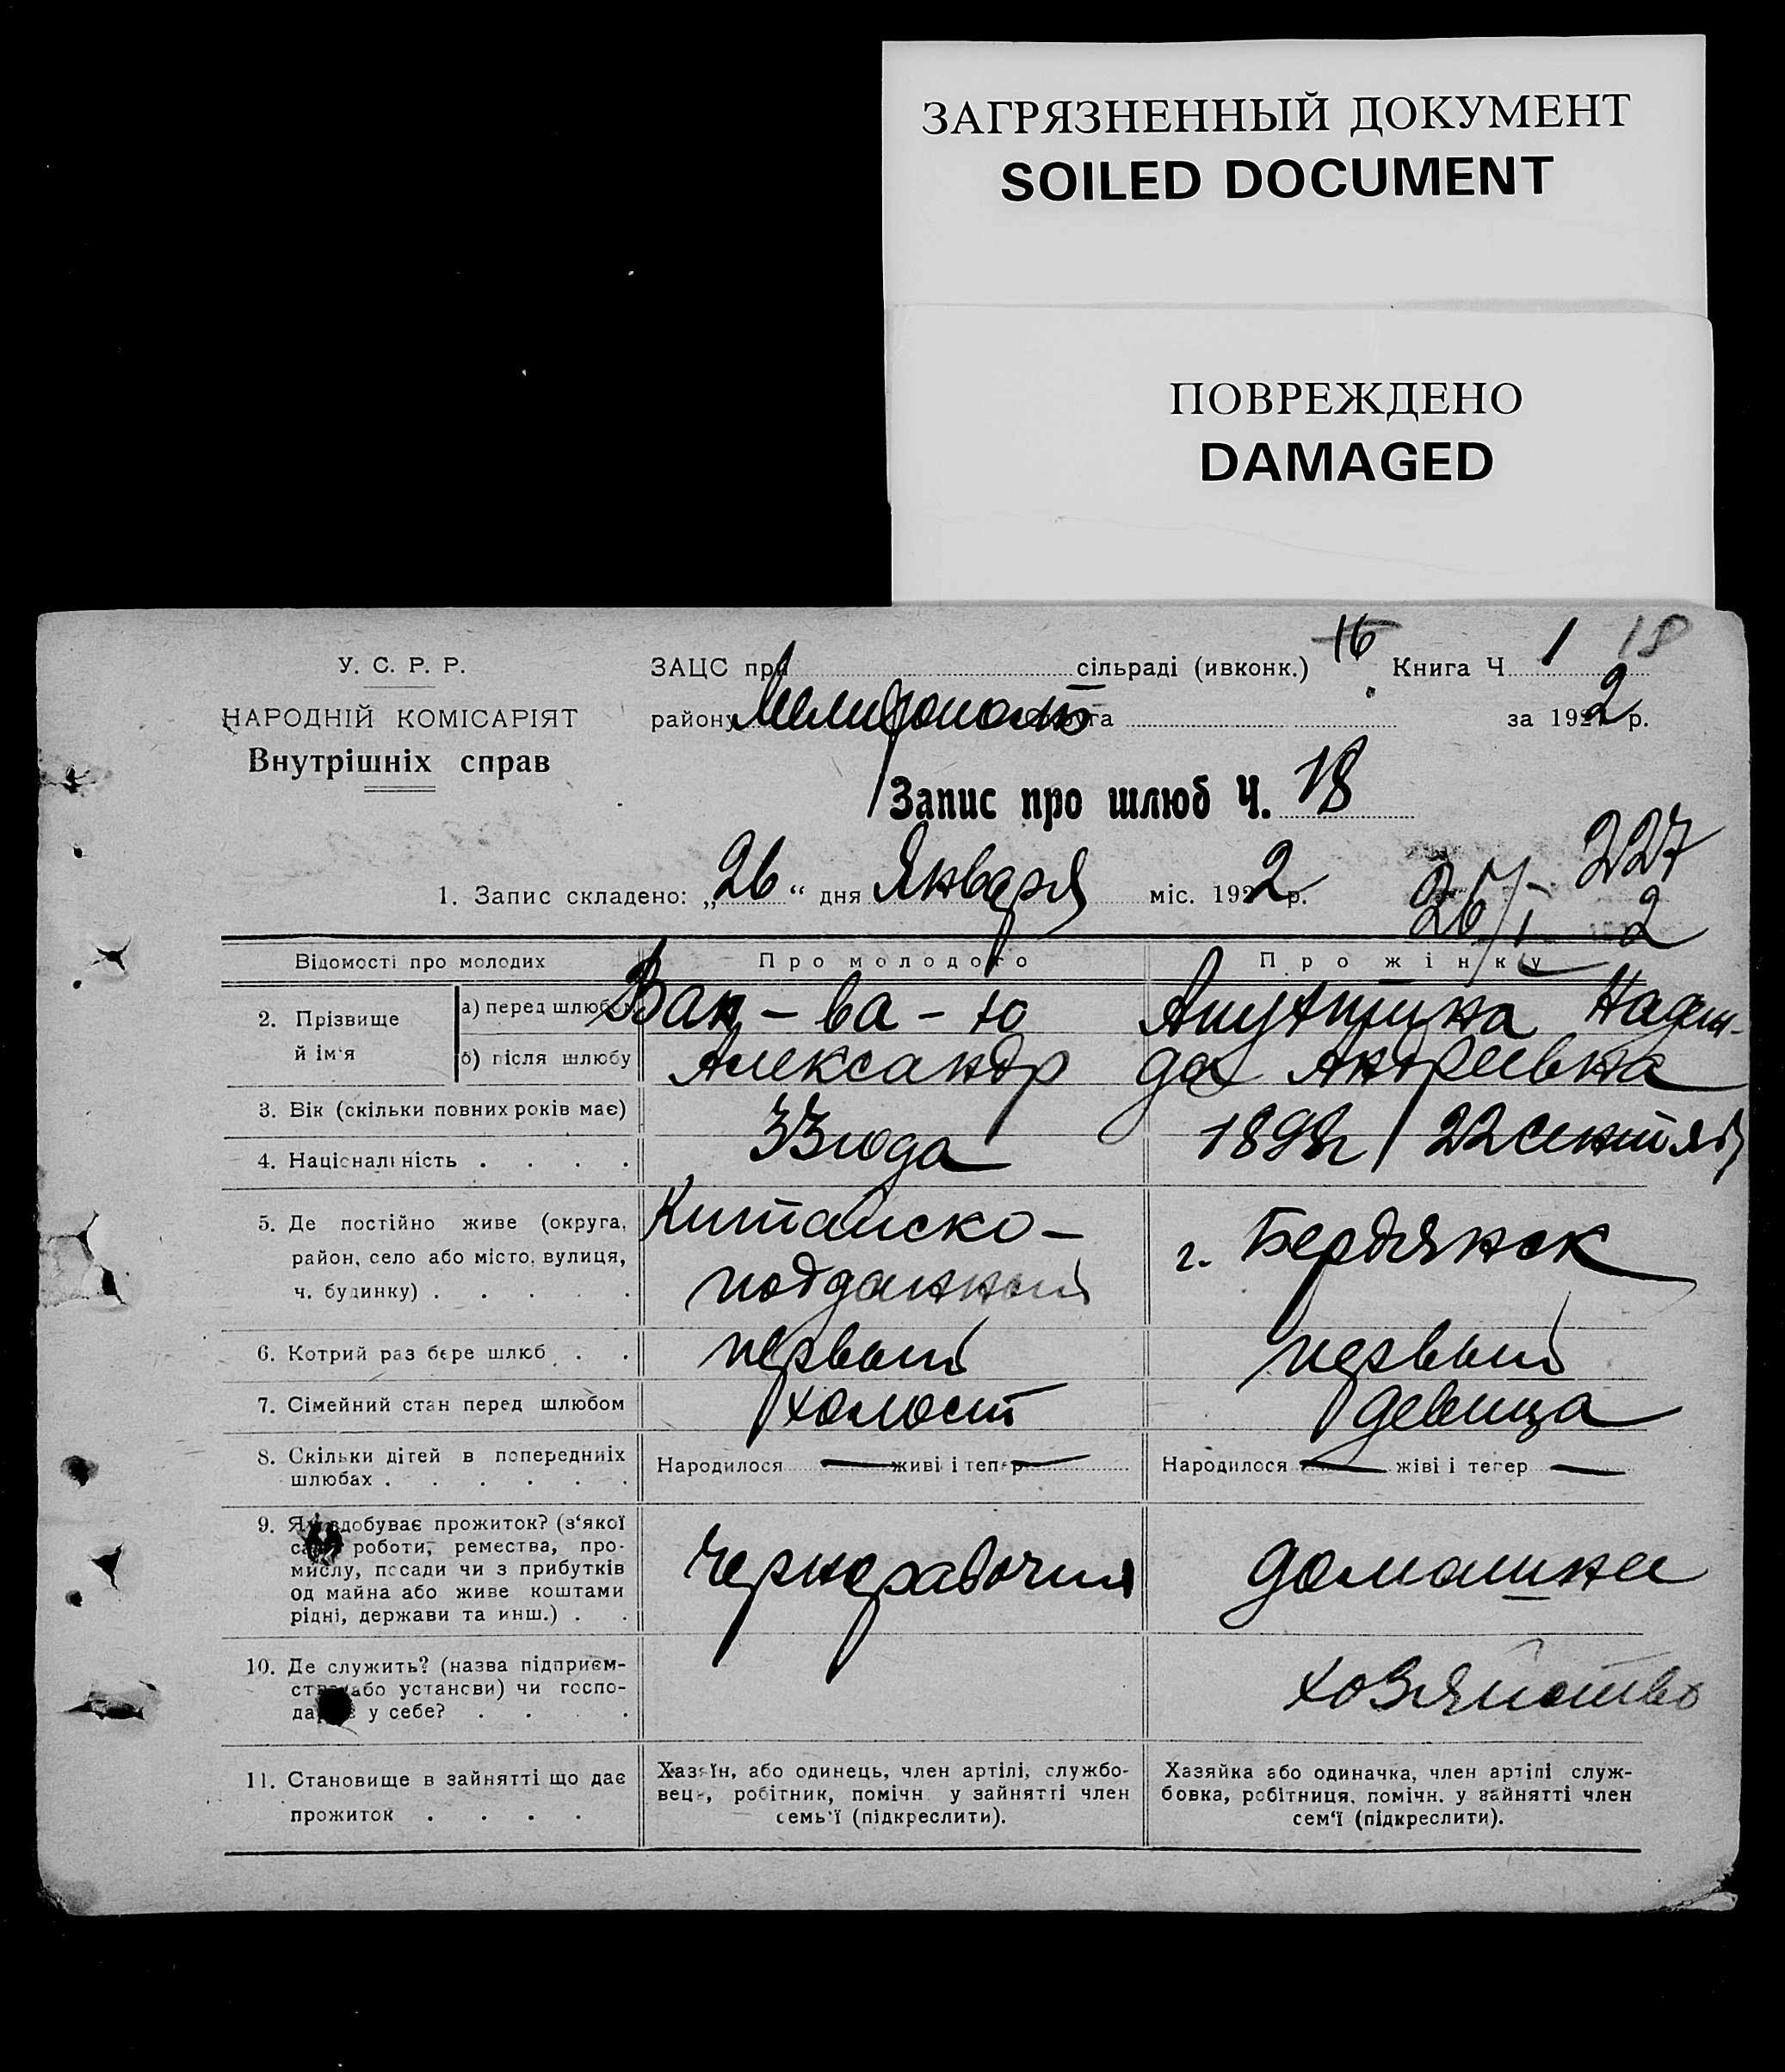 ЗАГРЯЗНЕННЫЙ ДОКУМЕНТ
SOILED DOCUMENT
ПОВРЕЖДЕНО
DAMAGED
У. С. Р. Р.
НАРОДНІЙ КОМІСАРІЯТ
Внутрішніх справ
ЗАЦС при сільраді (ивконк.) 16 Книга Ч. 1 18
району Мелитополь округа за 1922 р.
Запис про шлюб Ч. 18
227
1. Запис складено: „26“ дня Января міс. 1922 р. 26/I 2
Відомості про молодих Про молодого Про жінку
2. Прізвище й ім'я а) перед шлюбом Ван-ва-ю Надеж-
б) після шлюбу Александр да Андреевна
3. Вік (скільки повних років має) 33 года 1898 г / 22 сентяб
4. Національність . . . .
5. Де постійно живе (округа, район, село або місто, вулиця, ч. будинку) . . . . . Китайско-подданный г. Бердянск
6. Котрий раз бере шлюб . . первый первый
7. Сімейний стан перед шлюбом холост девица
8. Скільки дітей в попередниіх шлюбах . . . . . . Народилося — живі і тепер — Народилося — жіві і тепер —
9. Як здобуває прожиток? (з'якої саме роботи, ремества, промислу, посади чи з прибутків од майна або живе коштами рідні, держави та инш.) . . Чернорабочий домашнее
10. Де служить? (назва підприємства або установи) чи господарює у себе? . . . . хозяйство
11. Становище в зайнятті що дає прожиток . . . .
Хазяїн, або одинець, член артілі, службовець, робітник, помічн. у зайнятті член семь'ї (підкреслити).
Хазяйка або одиначка, член артілі службовка, робітниця, помічн. у зайнятті член сем'ї (підкреслити).